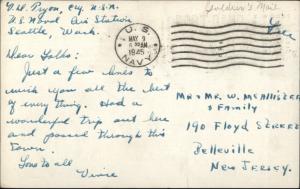 U.S. Naval Air Station
Seattle, Wash.
Soldier's Mail
Free
U.S.
MAY 9
AM
1945
NAVY
Dear Folks:
Just a few lines to
wish you all the best
of every thing. Had a
wonderful trip out here
and passed through this
town.
Love to all
Vinie
Mr & Mr. W. McAllister
& Family
190 Floyd Street
Belleville
New Jersey.